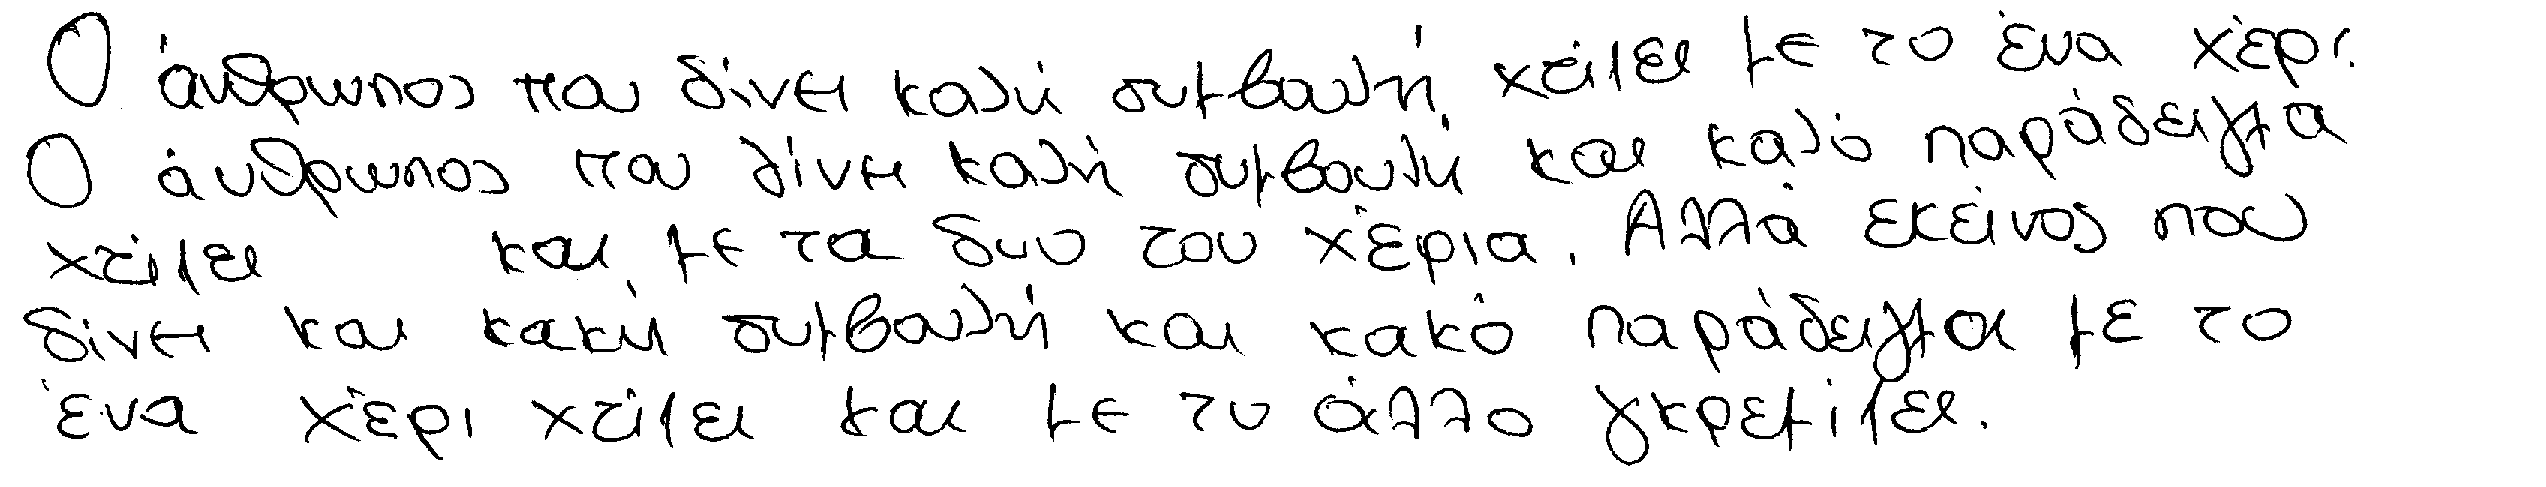 Ο άνθρωπος που δίνει καλή συμβουλή, χτίζει με το ένα χέρι.
Ο άνθρωπος που δίνει καλή συμβουλή και καλό παράδειγμα
χτίζει και με τα δυο του χέρια. Αλλά εκείνος που
δίνει και κακή συμβουλή και κακό παράδειγμα με το
ένα χέρι χτίζει και με το άλλο γκρεμίζει.